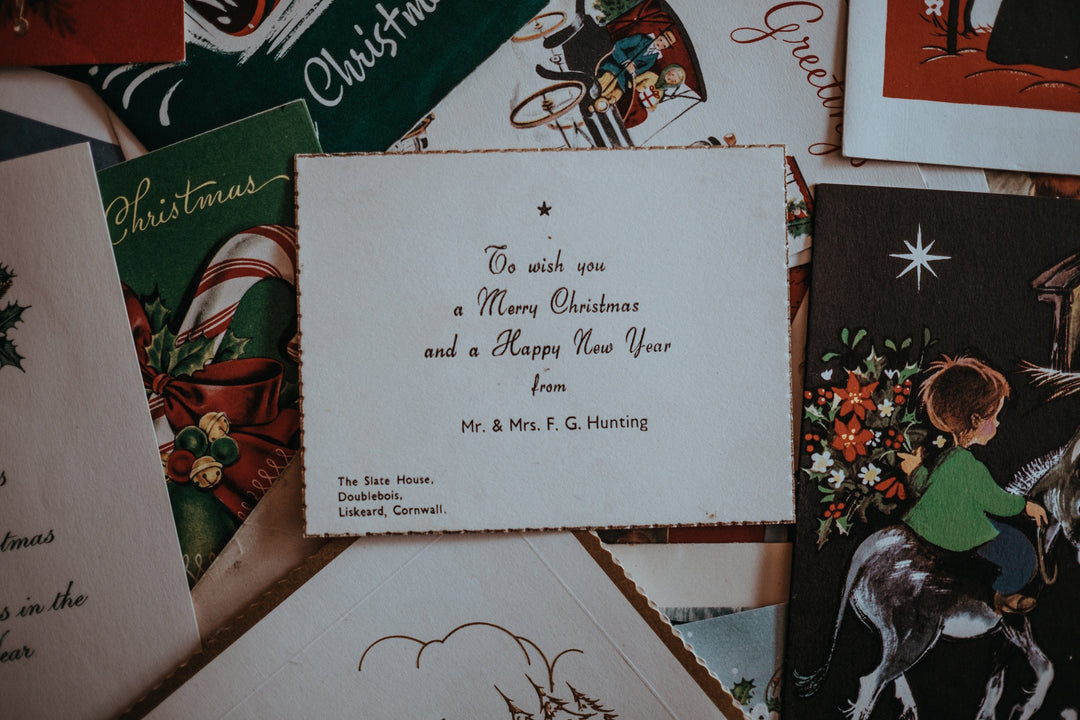 Christmas
Greeting
Christmas
To wish you
a Merry Christmas
and a Happy New Year
from
Mr. & Mrs. F. G. Hunting
The Slate House,
Doublebois,
Liskeard, Cornwall.
in the